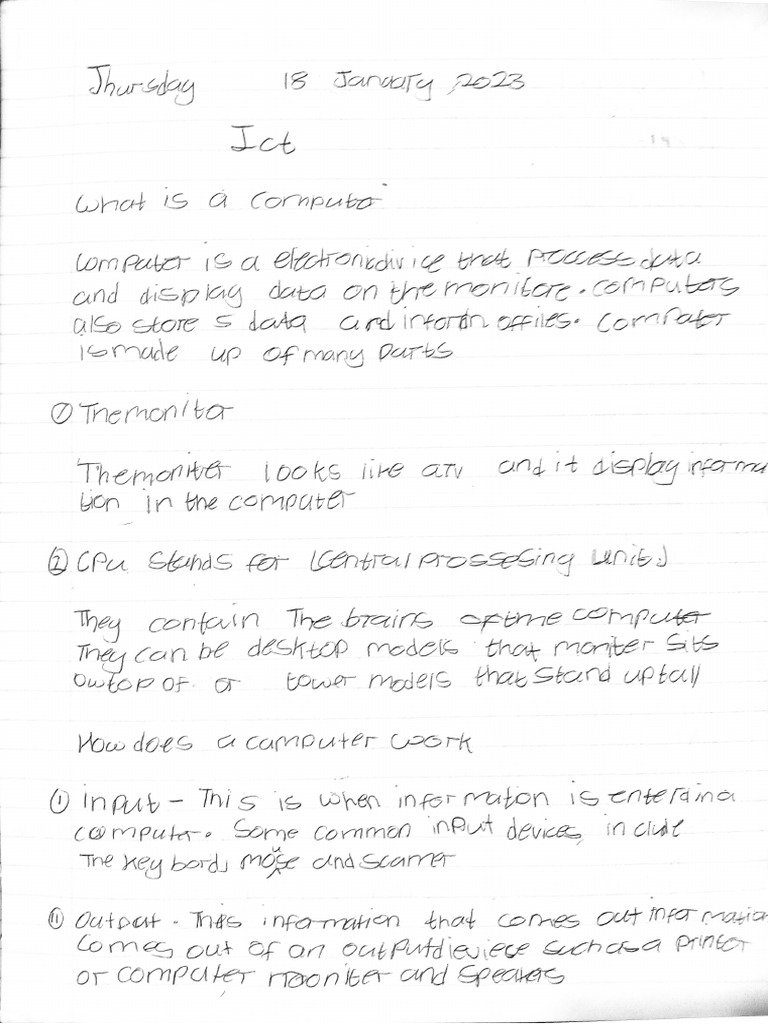 Thursday 18 January, 2023
Ict
What is a computor
Computer is a electronicdivice that proccess data
and display data on the monitore. computers
also store s data and inforin offiles. computer
is made up of many parts
① The monitor
The moniter looks like a TV and it display informa
tion in the computer
② CPU stands for (Central prossesing unit.)
They contain The brains of the computer
They can be desktop models that moniter sits
owtop of or tower models that stand up tall
How does a computer work
① Input - This is when information is enterd in a
computer. Some common input devices, in clude
The key bord, mouse and scanner
⑪ Output - This information that comes out information
Comes out of an output dieviece such as a printer
or computer mooniter and speakers